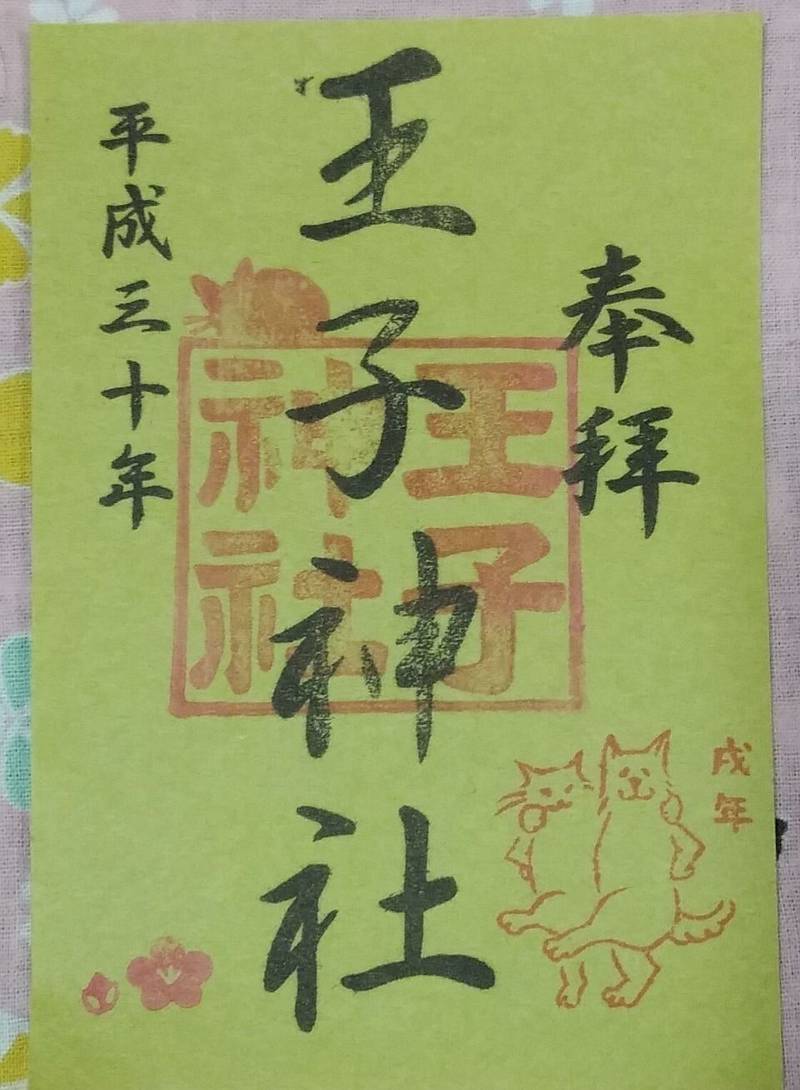 奉拝
王子神社
王子
神社
平成三十年
戌年